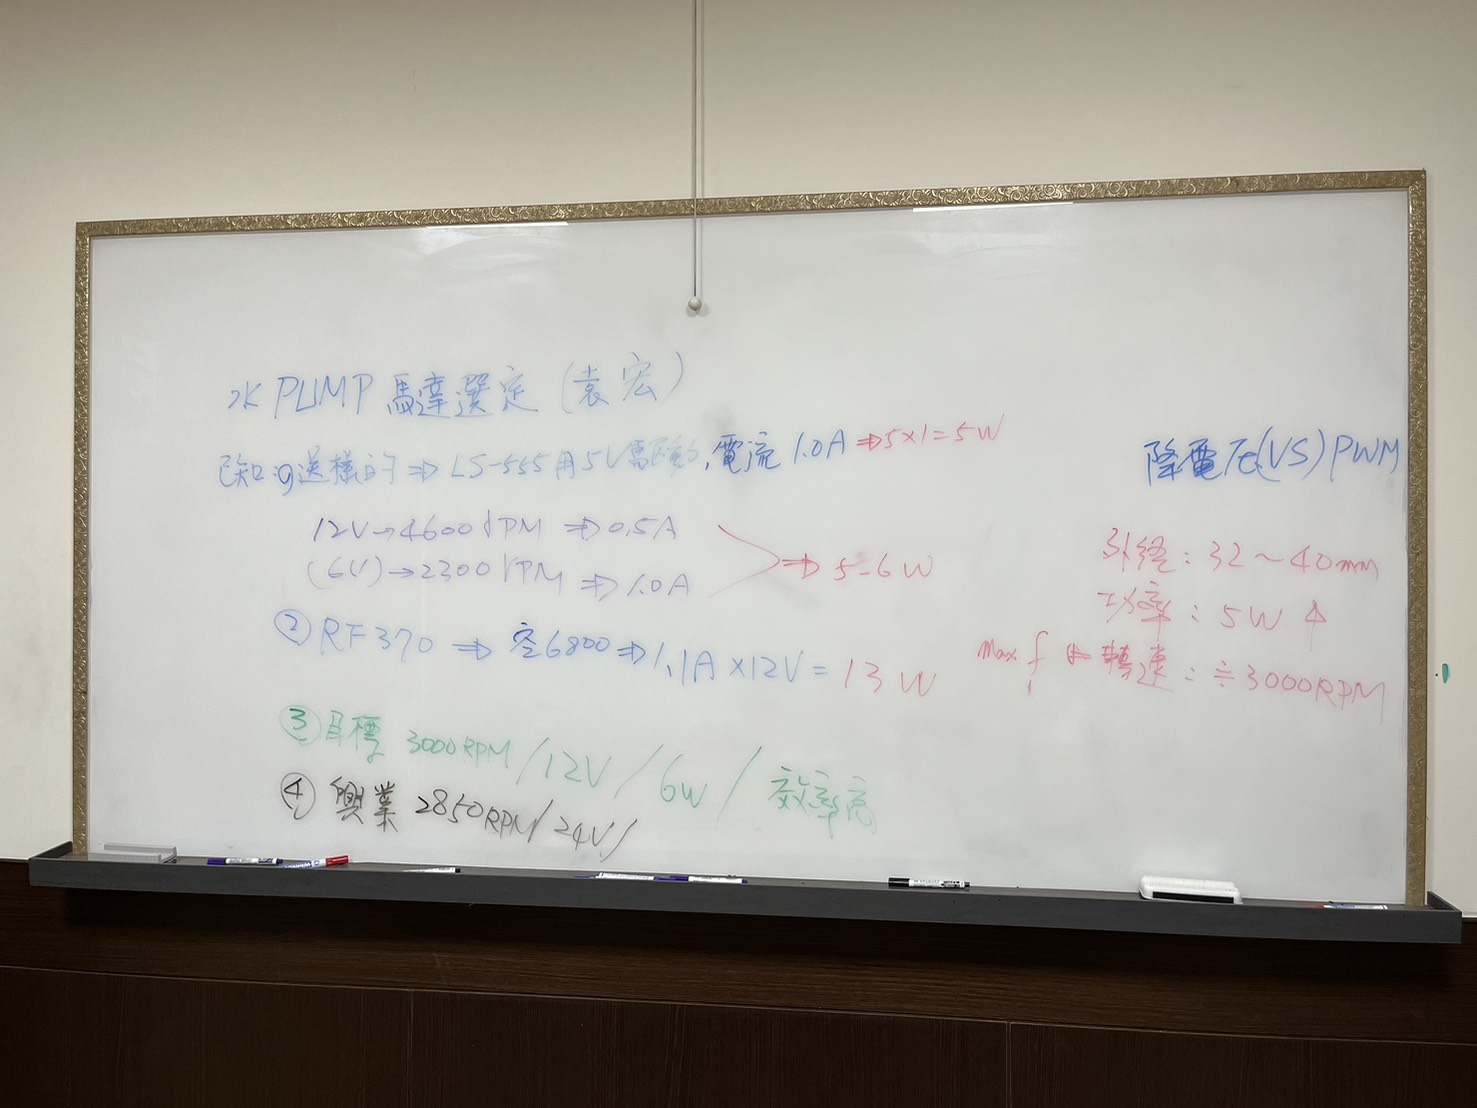 水PUMP馬達選定(袁宏)
已知:g送樣的⇒LS-555用5V驅動,電流1.0A⇒5×1=5W
12V→4600rPM⇒0.5A
(6V)→2300rPM⇒1.0A
⇒5-6W
②RF370⇒空6800⇒1.1A×12V=13W
③目標 3000RPM/12V/6W/效率高
④興業 2850RPM/24V/
降電压(VS)PWM
外徑:32~40mm
功率:5W↑
max 轉速:≑3000RPM